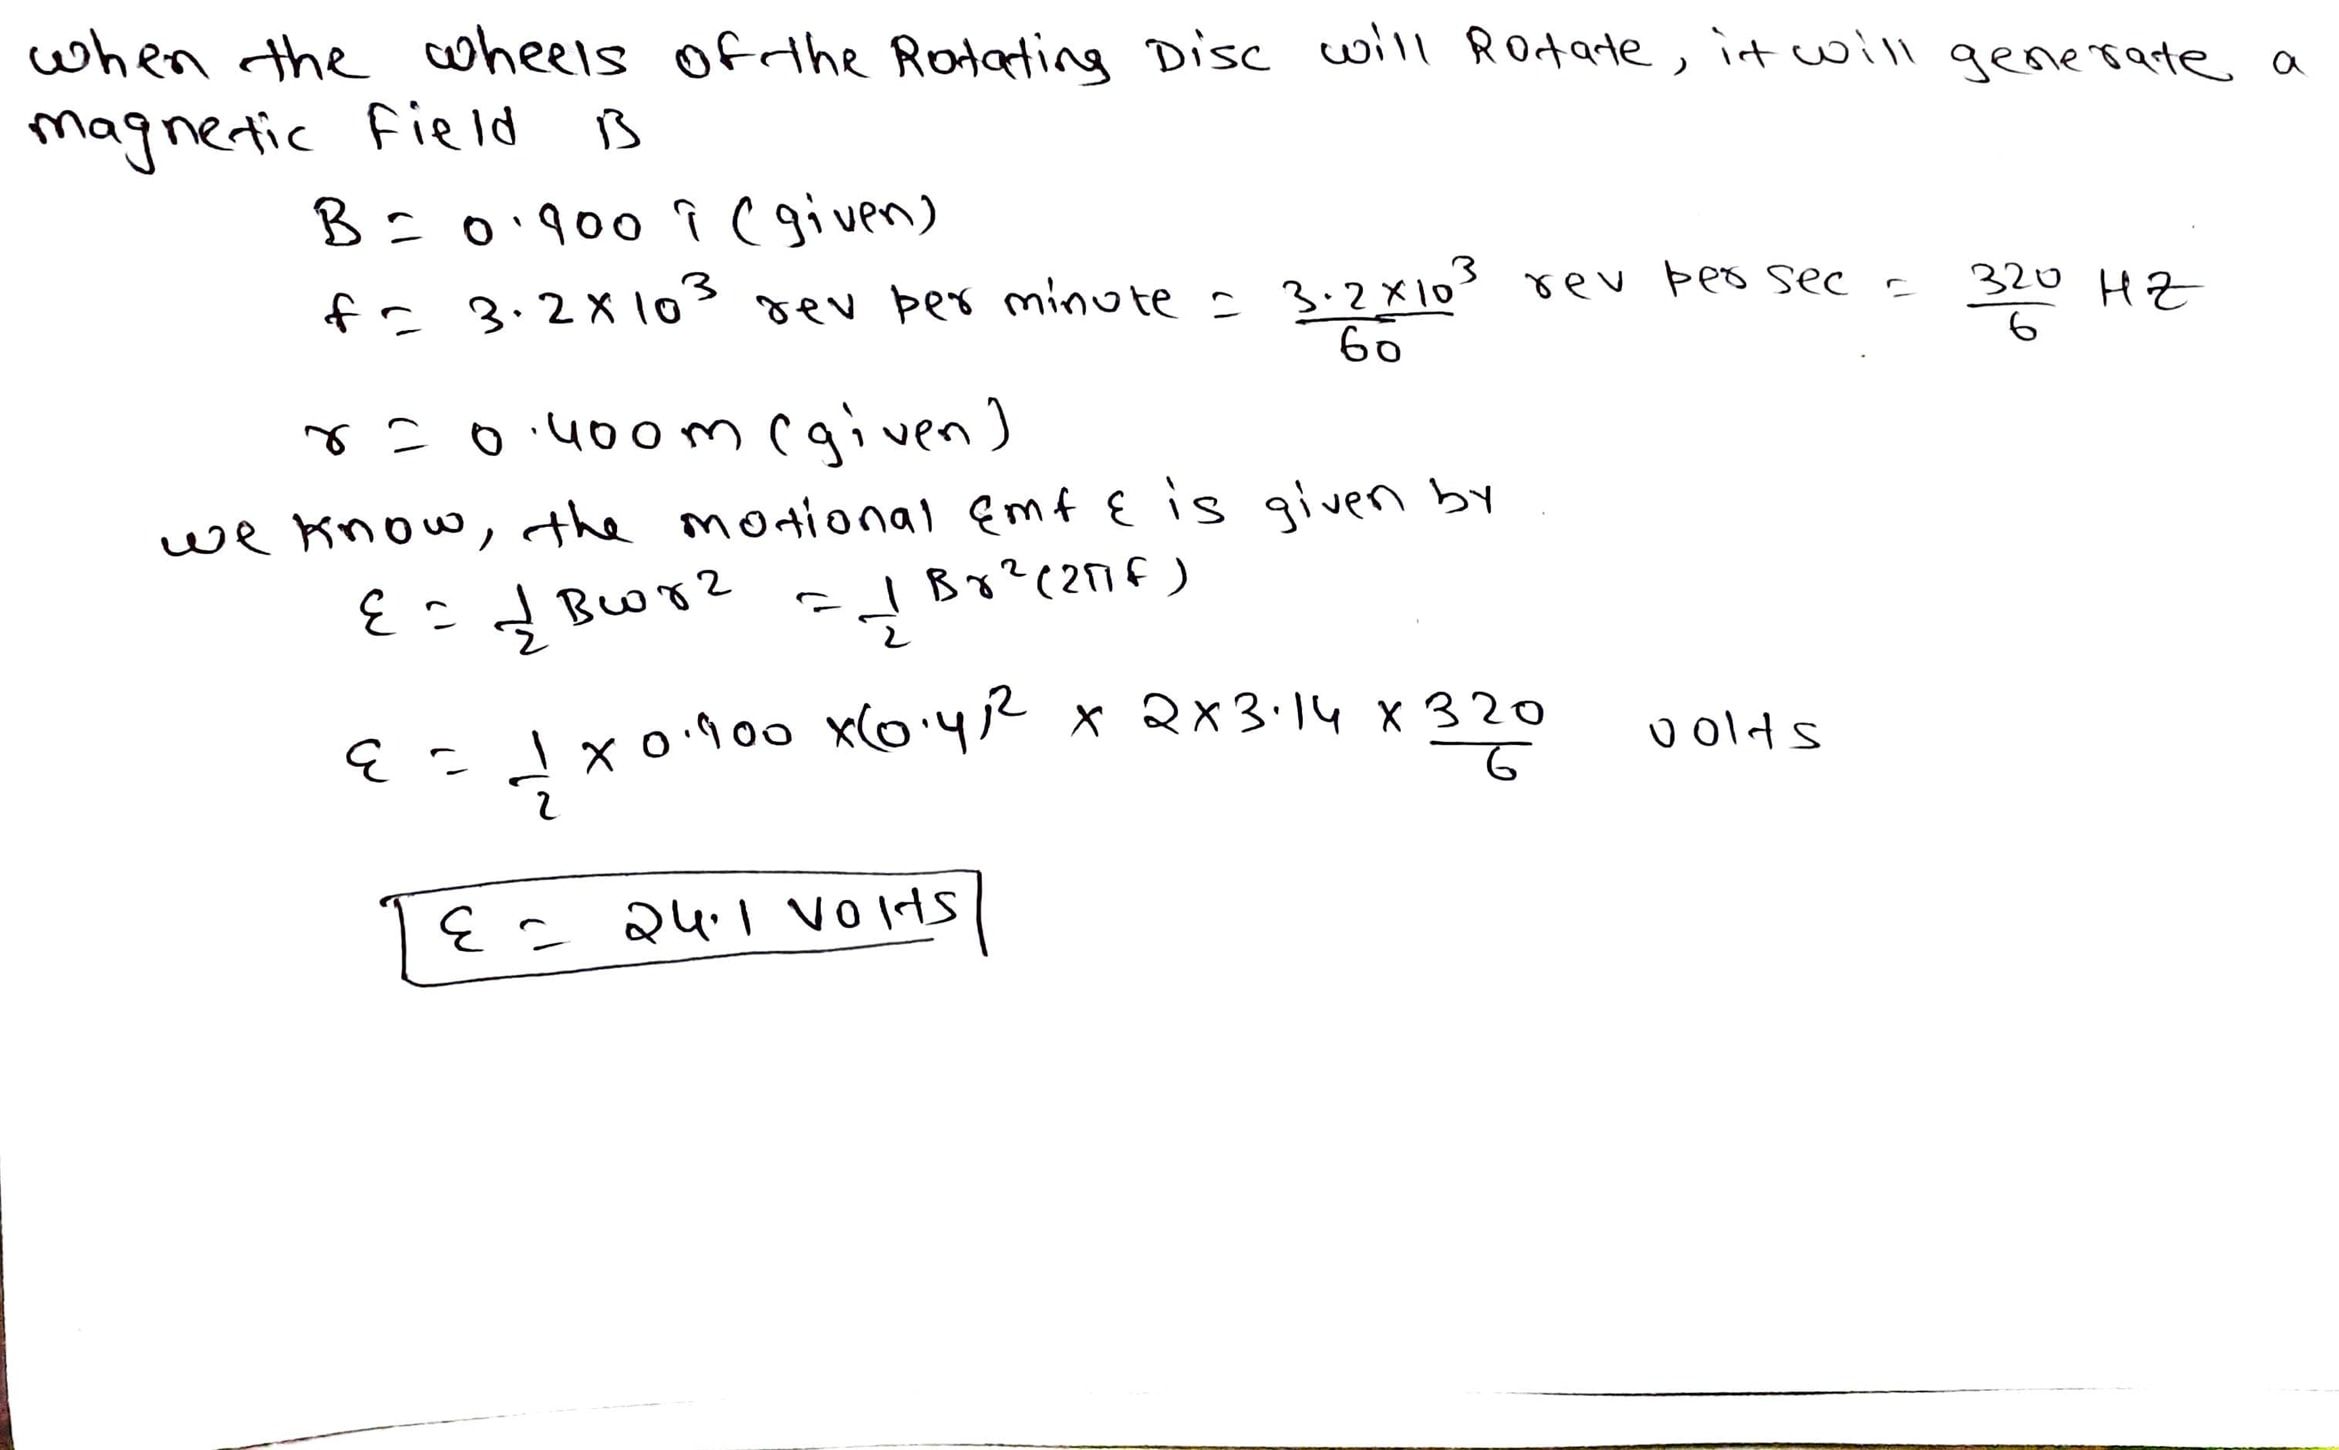 when the wheels of the Rotating Disc will Rotate, it will generate a
magnetic field B
B = 0.900 î (given)
f = 3.2×10³ rev per minute = 3.2×10³/60 rev per sec = 320/6 HZ
r = 0.400m (given)
we know, the motional Emf ε is given by
ε = 1/2 Bωr² = 1/2 Br²(2πf)
ε = 1/2 × 0.900 ×(0.4)² × 2×3.14 × 320/6 volts
ε = 24.1 volts